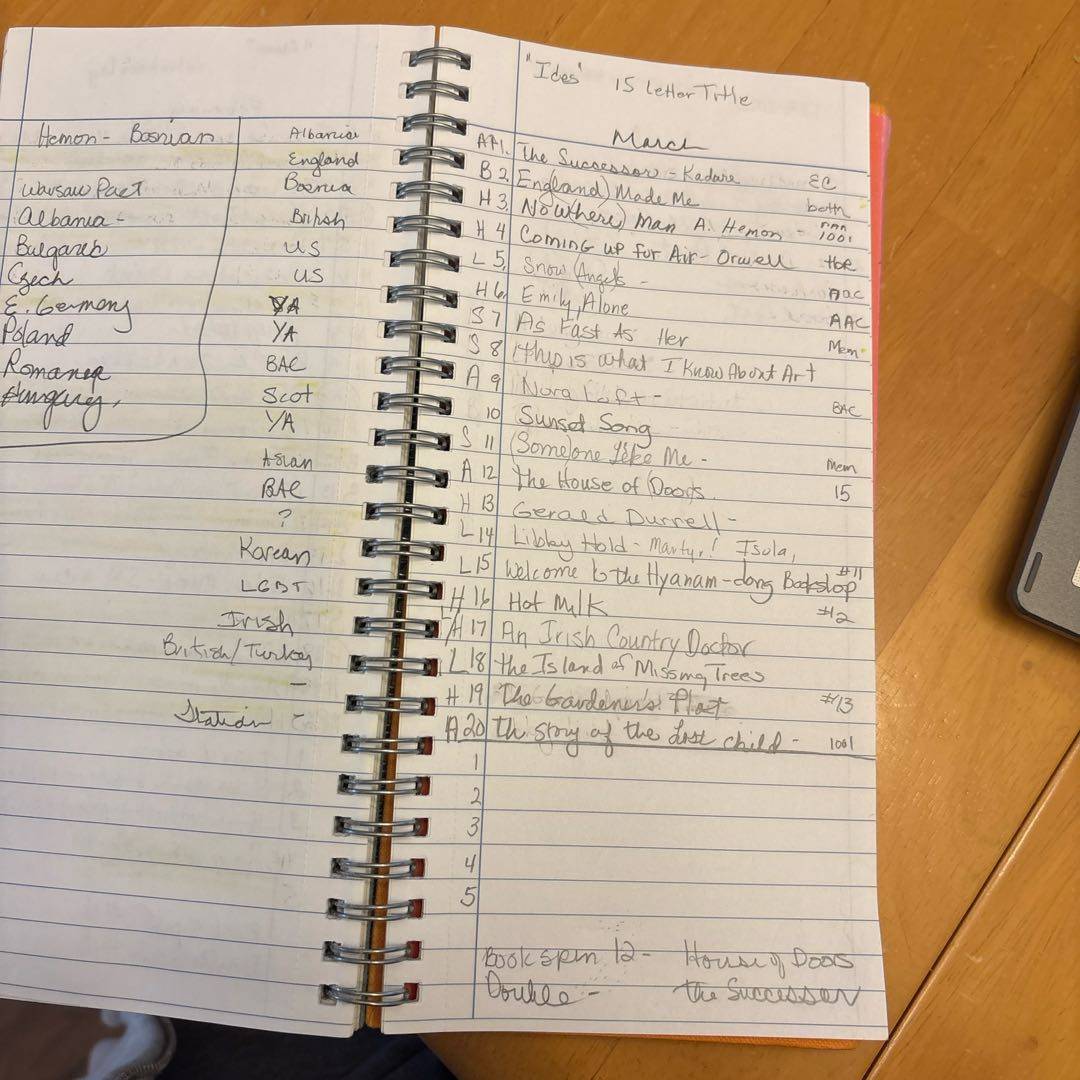 Hemon - Bosnian
Warsaw Pact
Albania -
Bulgaria
Czech
E. Germany
Poland
Romania
Hungary,
Albania
England
Bosnia
British
US
US
YA
YA
BAC
Scot
YA
Asian
BAC
?
Korean
LGBT
Irish
British/Turkey
-
-
"Ides" 15 Letter Title
March
1. The Successor - Kadare EC
B 2 England) Made Me both
H 3, No(where) Man A. Hemon - 1001
H 4 Coming up for Air - Orwell tbr
L 5, Snow (Angels - AAC
H 6, Emily, Alone AAC
S 7 As Fast As Her Mem
S 8 (this is what I Know About Art
A 9 Nora Loft - BAC
10 Sunset Song
S 11 (Some)one Like Me - Mem
A 12 The House of (Doors 15
H 13 Gerald Durrell -
L 14 Libby Hold - Martyr! Isola,
L 15 Welcome to the Hyanam-dong Bookshop #11
H 16 Hot Milk #2
H 17 An Irish Country Doctor
L 18 the Island of Missing Trees
H 19 The Gardener's Plot #13
A 20 Th story of the Lost child - 1001
1
2
3
4
5
Bookspin 12 - House of Doors
Double - the Successor